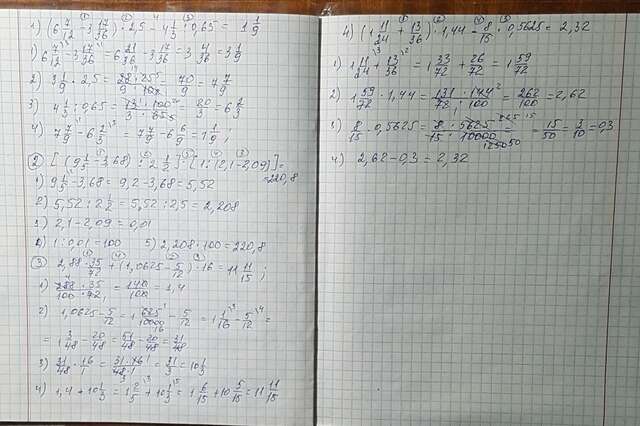 1) (6 7/12 - 3 17/36) · 2,5 - 4 1/3 : 0,65 = 1 1/9
1) 6 7/12 - 3 17/36 = 6 21/36 - 3 17/36 = 3 4/36 = 3 1/9
2) 3 1/9 · 2,5 = 28 · 25 / 9 · 10 = 70/9 = 7 7/9
3) 4 1/3 : 0,65 = 13 · 100 / 3 · 65 = 20/3 = 6 2/3
4) 7 7/9 - 6 2/3 = 7 7/9 - 6 6/9 = 1 1/9 ;
2) [(9 1/5 - 3,68) : 2 1/2] : [1 : (2,1 - 2,09)] =
= 220,8
1) 9 1/5 - 3,68 = 9,2 - 3,68 = 5,52
2) 5,52 : 2 1/2 = 5,52 : 2,5 = 2,208
3) 2,1 - 2,09 = 0,01
4) 1 : 0,01 = 100 5) 2,208 · 100 = 220,8
3) 2,88 · 35/72 + (1,0625 - 5/12) · 16 = 11 11/15 ;
1) 288 · 35 / 100 · 72 = 140/100 = 1,4
2) 1,0625 - 5/12 = 1 625/10000 - 5/12 = 1 1/16 - 5/12 =
= 1 3/48 - 20/48 = 51/48 - 20/48 = 31/48
3) 31/48 · 16/1 = 31 · 16 / 48 · 1 = 31/3 = 10 1/3
4) 1,4 + 10 1/3 = 1 2/5 + 10 1/3 = 1 6/15 + 10 5/15 = 11 11/15
4) (1 11/24 + 13/36) · 1,44 - 8/15 · 0,5625 = 2,32
1) 1 11/24 + 13/36 = 1 33/72 + 26/72 = 1 59/72
2) 1 59/72 · 1,44 = 131 · 144 / 72 · 100 = 262/100 = 2,62
3) 8/15 · 0,5625 = 8 · 5625 / 15 · 10000 = 15/50 = 3/10 = 0,3
4) 2,62 - 0,3 = 2,32